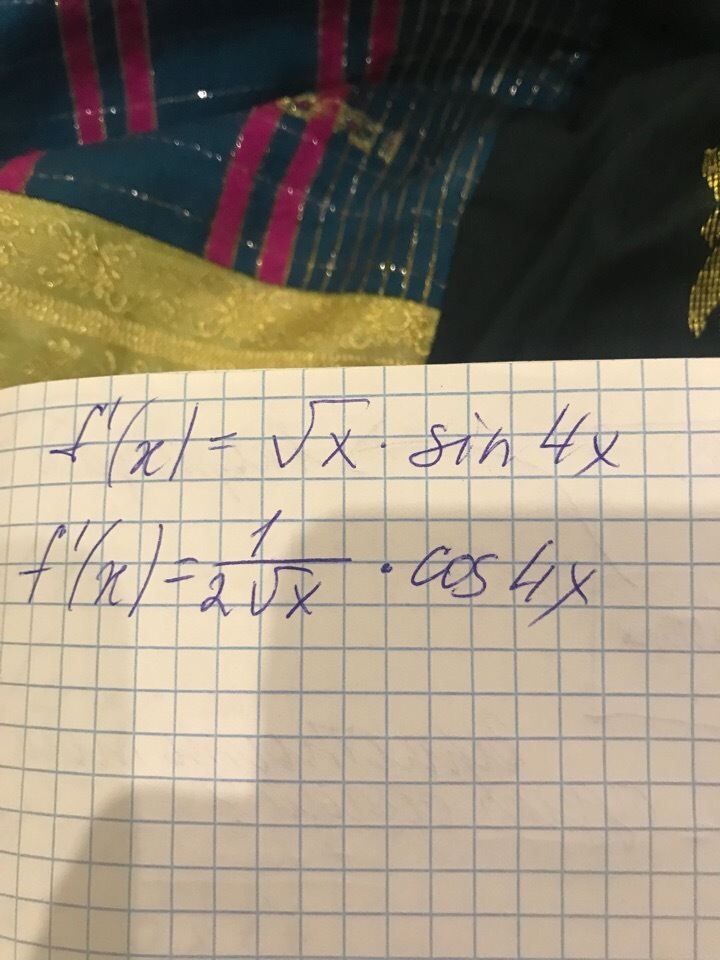 f'(x) = √x · sin 4x
f'(x) = 1/(2√x) · cos 4x